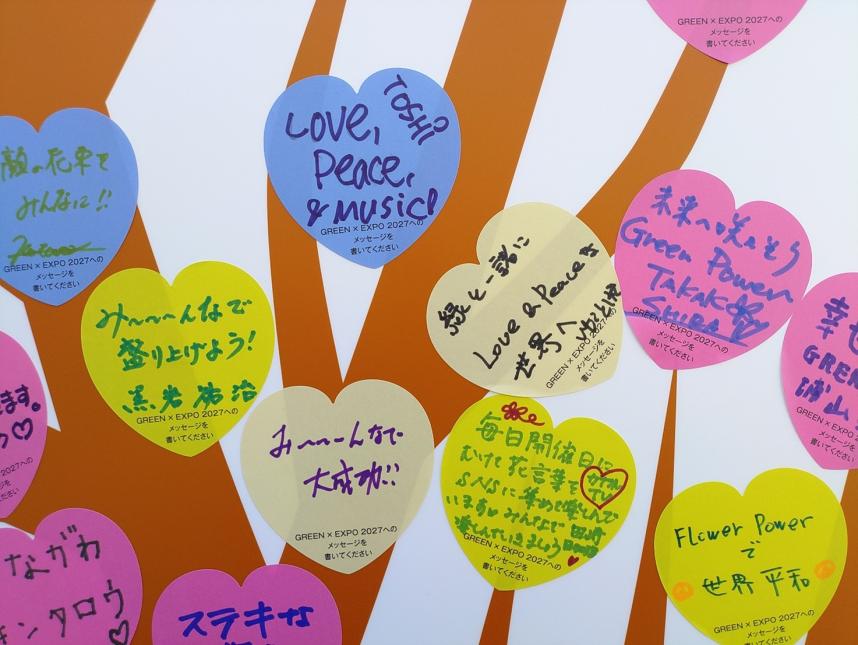 GREEN × EXPO 2027への
メッセージを
書いてください
LOVE,
Peace,
& MUSIC!
TOSHI
GREEN × EXPO 2027への
メッセージを
書いてください
顔の花束を
みんなに!!
GREEN × EXPO 2027への
メッセージを
書いてください
み〜〜〜んなで
盛り上げよう!
黒岩祐治
GREEN × EXPO 2027への
メッセージを
書いてください
緑と一緒に
Love & Peace を
世界へ
GREEN × EXPO 2027への
メッセージを
書いてください
未来へ咲かそう
Green Power
TAKAKO
GREEN × EXPO 2027への
メッセージを
書いてください
幸せ
GREEN
浦山
GREEN × EXPO
メッセージを
書いてください
ます。
♡
み〜〜〜んなで
大成功!!
GREEN × EXPO 2027への
メッセージを
書いてください
毎日開催日に
むけた花言葉を
SNSに集めて楽しんで
います みんなで
楽しんでいきましょう
GREEN × EXPO 2027への
メッセージを
書いてください
Flower Power
で
世界平和
GREEN × EXPO 2027への
メッセージを
書いてください
ながわ
キンタロウ
♡
ステキな